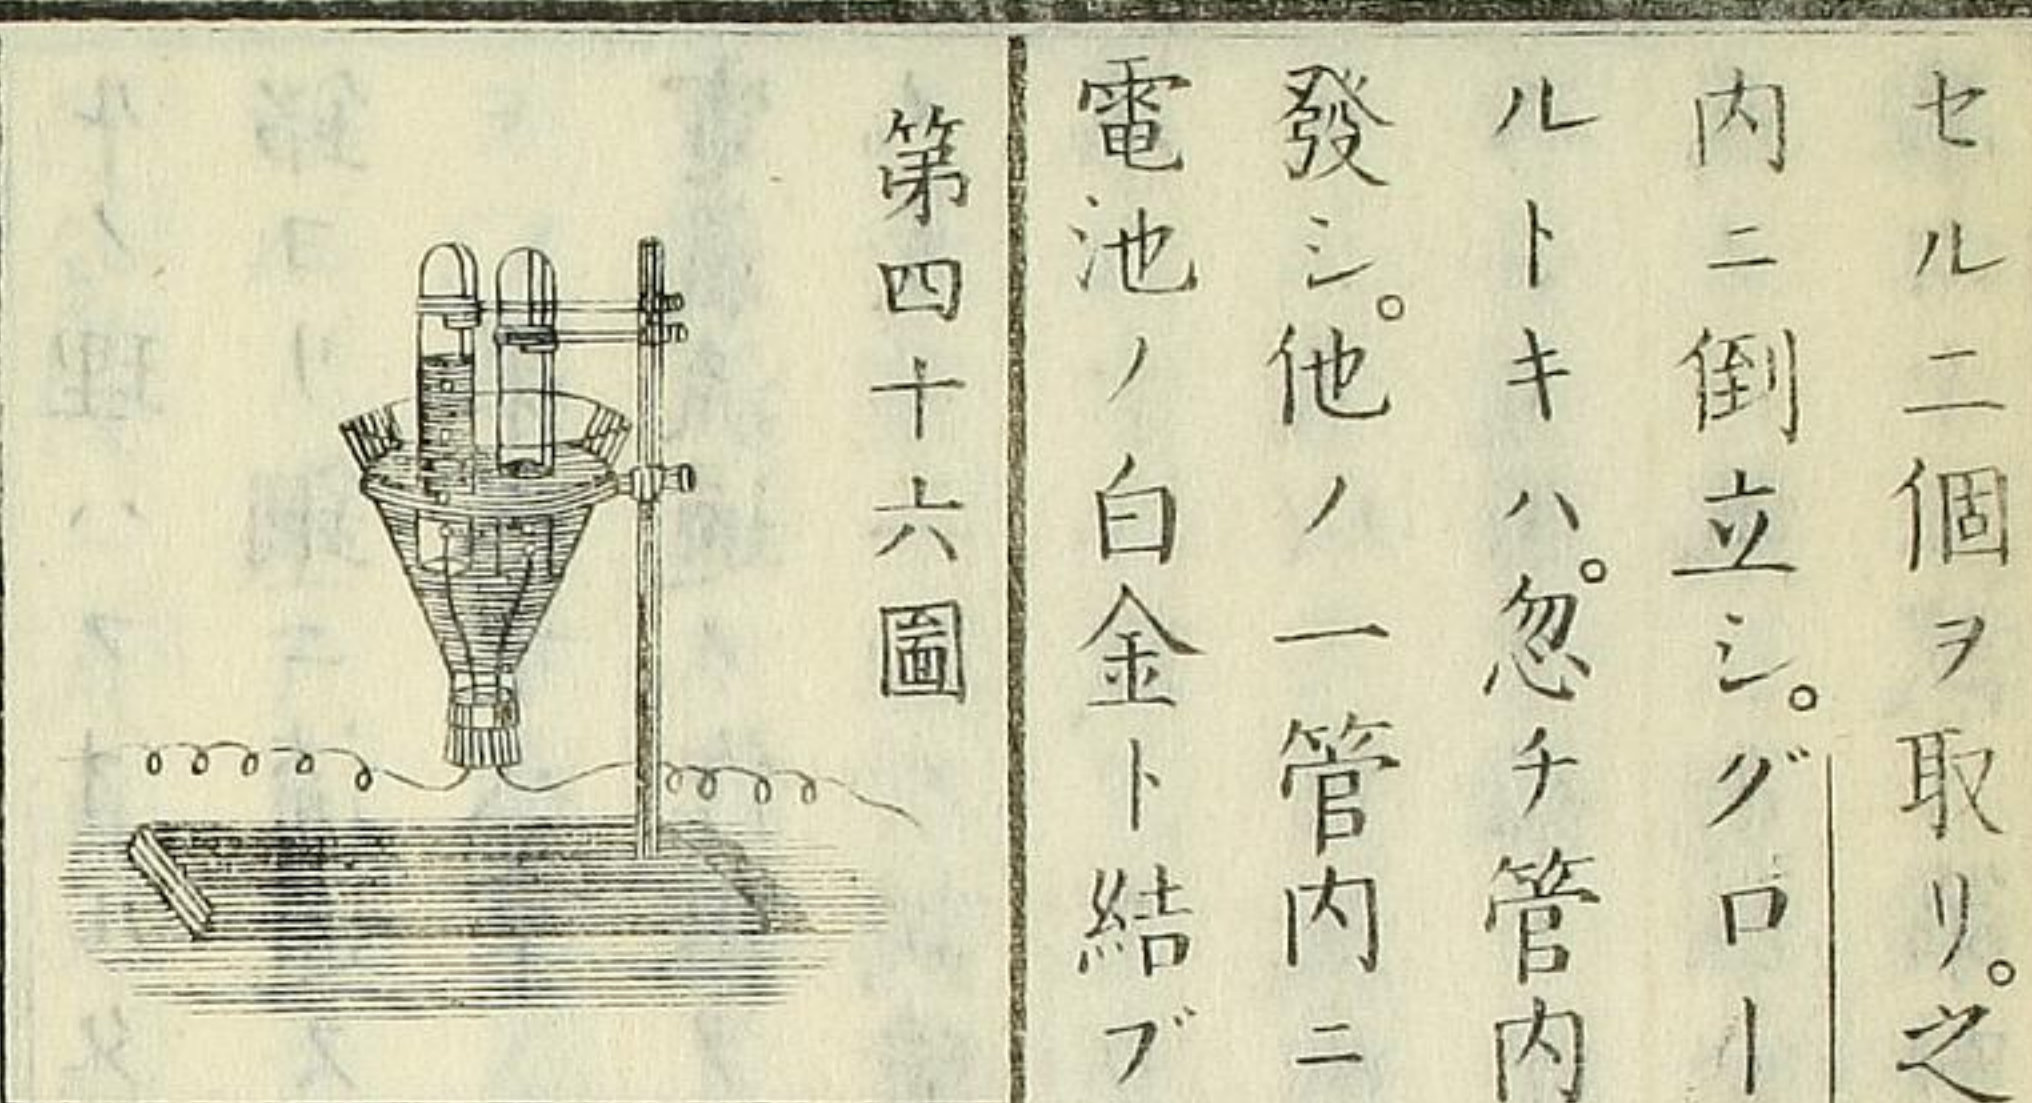 セル二個ヲ取リ。之
内ニ倒立シ。グロー
ルトキハ。忽チ管内
發シ。他ノ一管内ニ
電池ノ白金ト結ブ
第四十六圖